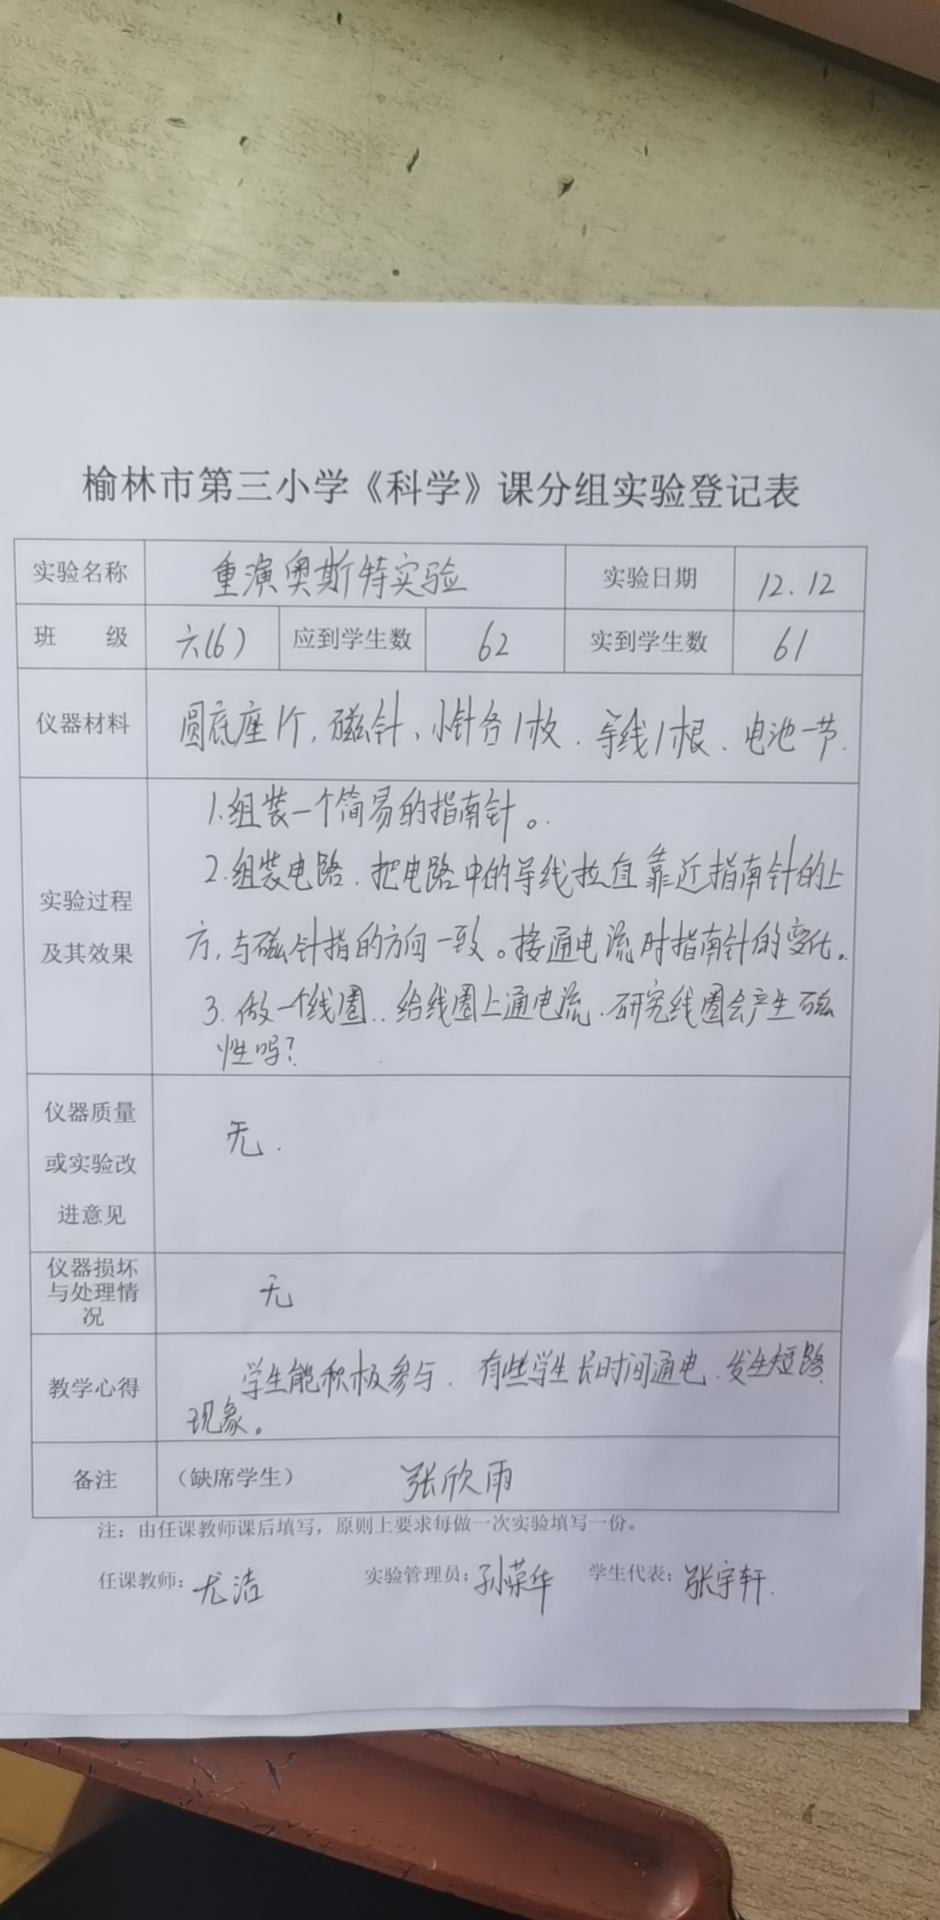 榆林市第三小学《科学》课分组实验登记表
实验名称 重演奥斯特实验 实验日期 12.12
班 级 六(6) 应到学生数 62 实到学生数 61
仪器材料 圆底座1个,磁针、小针各1枚.导线1根、电池一节.
实验过程
及其效果
1.组装一个简易的指南针。
2.组装电路.把电路中的导线拉直靠近指南针的上
方,与磁针指的方向一致。接通电流时指南针的变化。
3.做一个线圈..给线圈上通电流.研究线圈会产生磁
性吗?
仪器质量
或实验改
进意见
无.
仪器损坏
与处理情
况
无
教学心得
学生能积极参与.有些学生长时间通电、发生短路
现象。
备注 (缺席学生) 张欣雨
注:由任课教师课后填写,原则上要求每做一次实验填写一份。
任课教师:尤洁 实验管理员:孙荣华 学生代表:张宇轩.